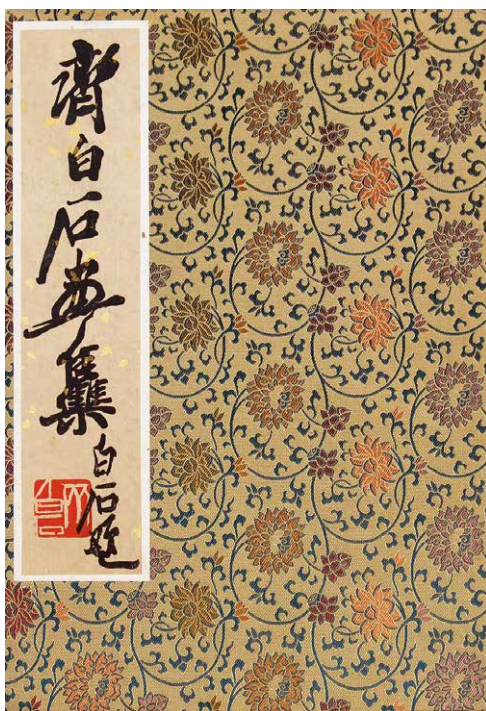 齊白石畫集
白石題